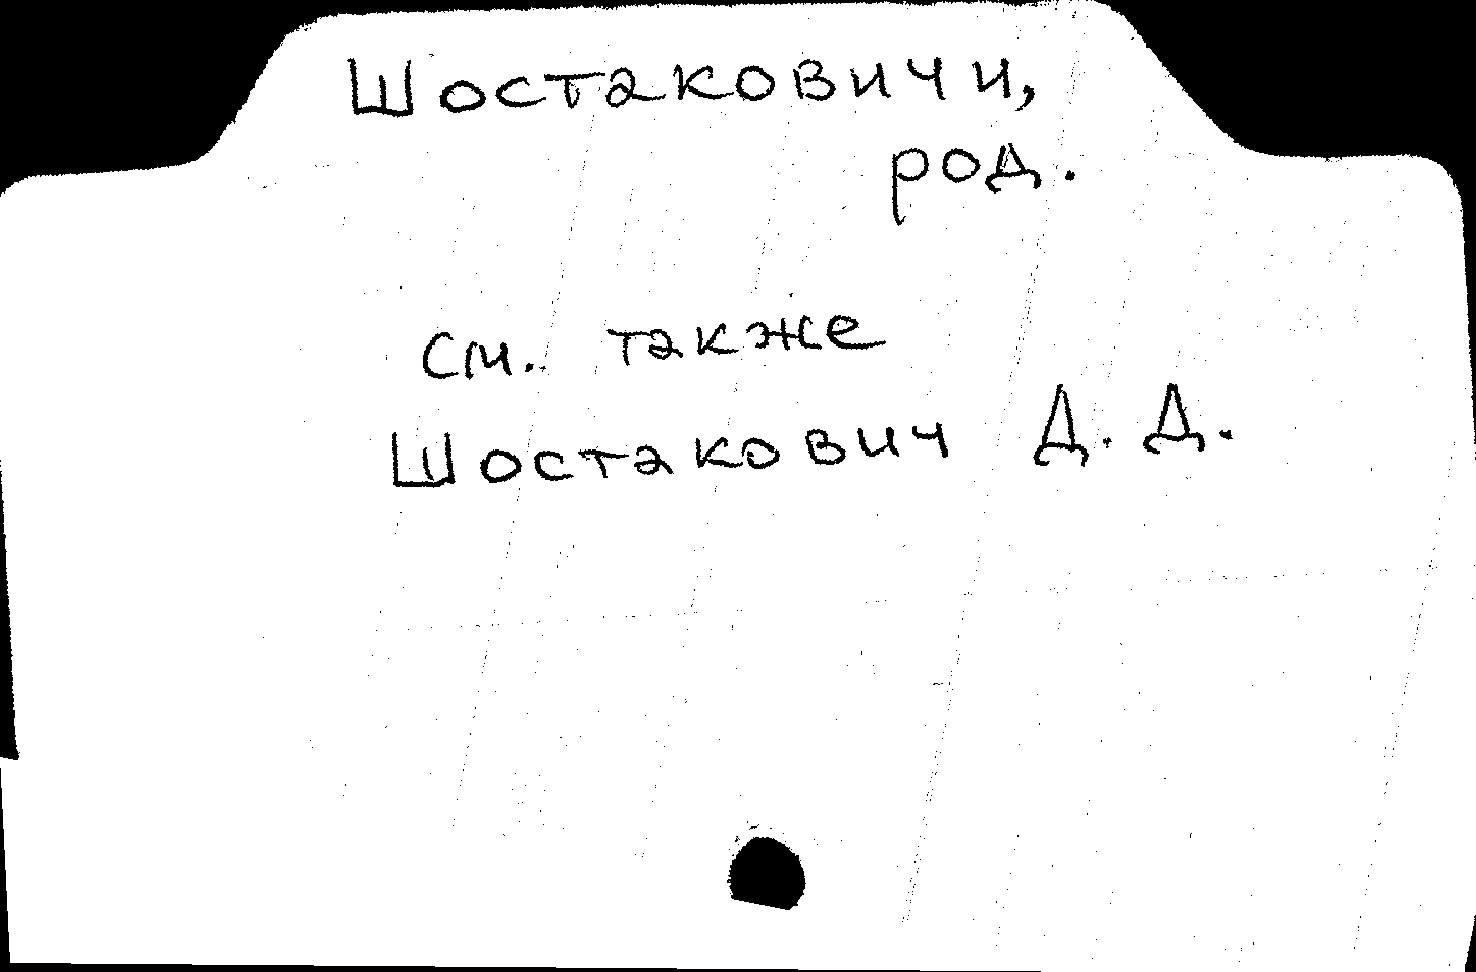 Шостаковичи,
род.
см. также
Шостакович Д. Д.